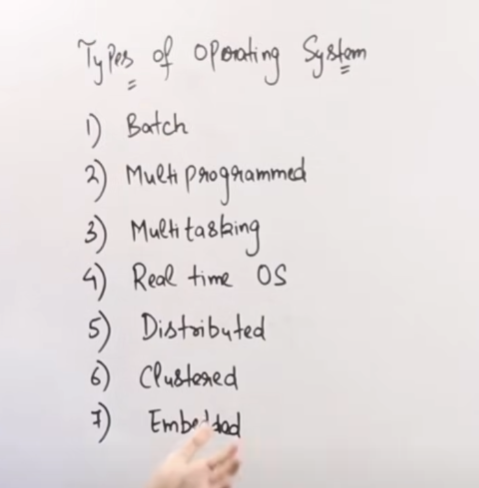 Types of Operating System
1) Batch
2) Multi programmed
3) Multitasking
4) Real time OS
5) Distributed
6) Clustered
7) Embedded